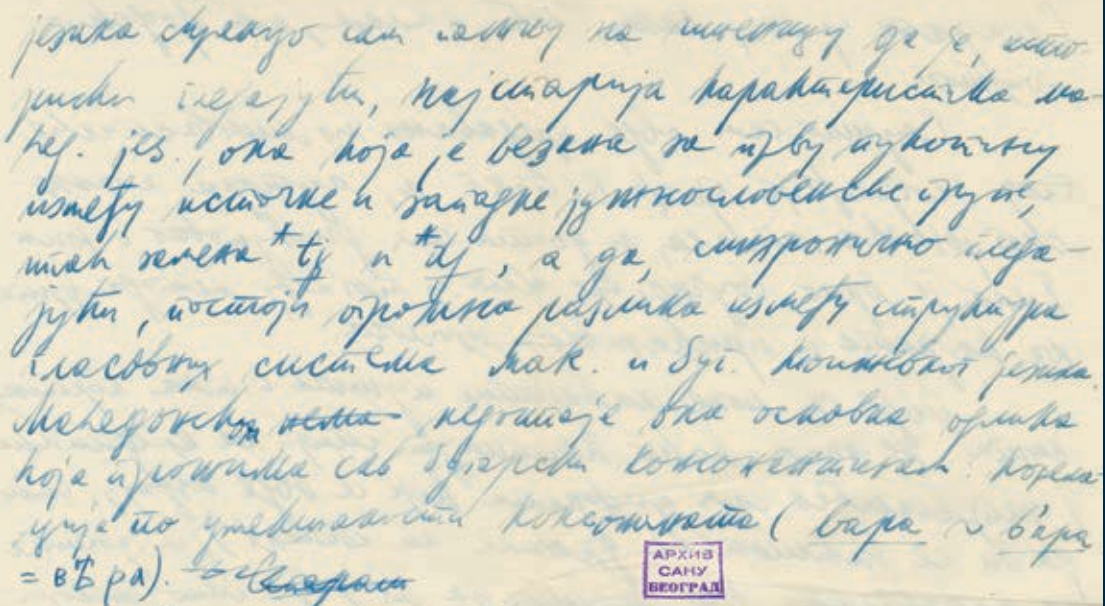 језика скренуо сам пажњу на чињеницу да је, исто-
риски гледајући, најстарија карактеристика ма-
кед. јез., она која је везана за прву пукотину
између источне и западне јужнословенске групе,
тј. замена *tj и *dj, а да, синхронично гледа-
јући, постоји огромна разлика између структура
гласовних система мак. и буг. књижевног језика.
Македонском нема недостаје она основна одлика
која прожима сав бугарски консонантизам: корела-
ција по умекшаности консонаната (вара ~ в'ара
= вѣра).
АРХИВ
САНУ
БЕОГРАД